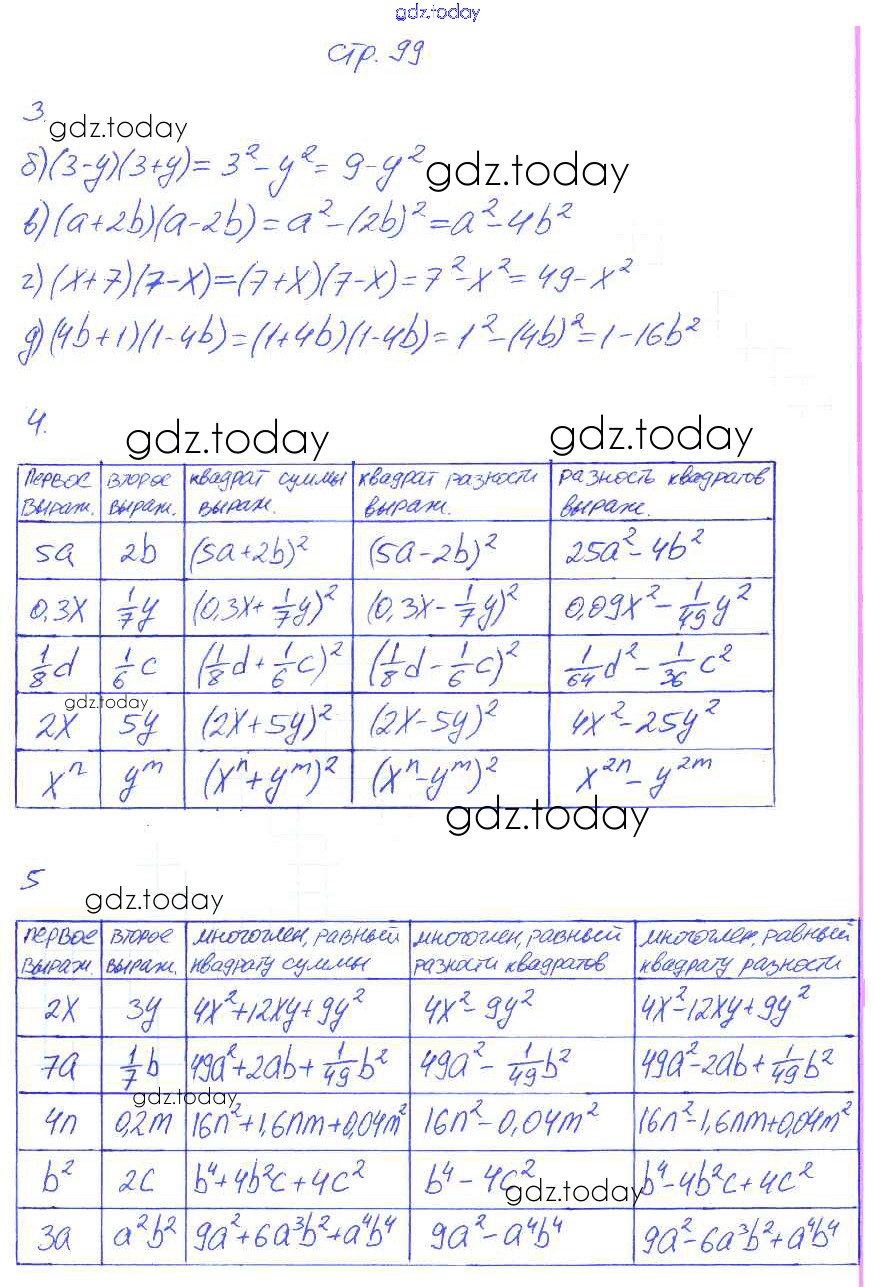 gdz.today
стр. 99
3.
gdz.today
б) (3-y)(3+y) = 3² - y² = 9 - y²
gdz.today
в) (a+2b)(a-2b) = a² - (2b)² = a² - 4b²
г) (x+7)(7-x) = (7+x)(7-x) = 7² - x² = 49 - x²
д) (4b+1)(1-4b) = (1+4b)(1-4b) = 1² - (4b)² = 1 - 16b²
4.
gdz.today gdz.today
первое выраж. второе выраж. квадрат суммы выраж. квадрат разности выраж. разность квадратов выраж.
5a 2b (5a+2b)² (5a-2b)² 25a² - 4b²
0,3x 1/7 y (0,3x + 1/7 y)² (0,3x - 1/7 y)² 0,09x² - 1/49 y²
1/8 d 1/6 c (1/8 d + 1/6 c)² (1/8 d - 1/6 c)² 1/64 d² - 1/36 c²
gdz.today
2x 5y (2x+5y)² (2x-5y)² 4x² - 25y²
xⁿ yᵐ (xⁿ+yᵐ)² (xⁿ-yᵐ)² x²ⁿ - y²ᵐ
gdz.today
5
gdz.today
первое выраж. второе выраж. многочлен, равный квадрату суммы многочлен, равный разности квадратов многочлен, равный квадрату разности
2x 3y 4x²+12xy+9y² 4x² - 9y² 4x²-12xy+9y²
7a 1/7 b 49a²+2ab+1/49 b² 49a² - 1/49 b² 49a²-2ab+1/49 b²
gdz.today
4n 0,2m 16n²+1,6nm+0,04m² 16n² - 0,04m² 16n²-1,6nm+0,04m²
b² 2c b⁴+4b²c+4c² b⁴ - 4c² b⁴-4b²c+4c²
gdz.today
3a a²b² 9a²+6a³b²+a⁴b⁴ 9a² - a⁴b⁴ 9a²-6a³b²+a⁴b⁴